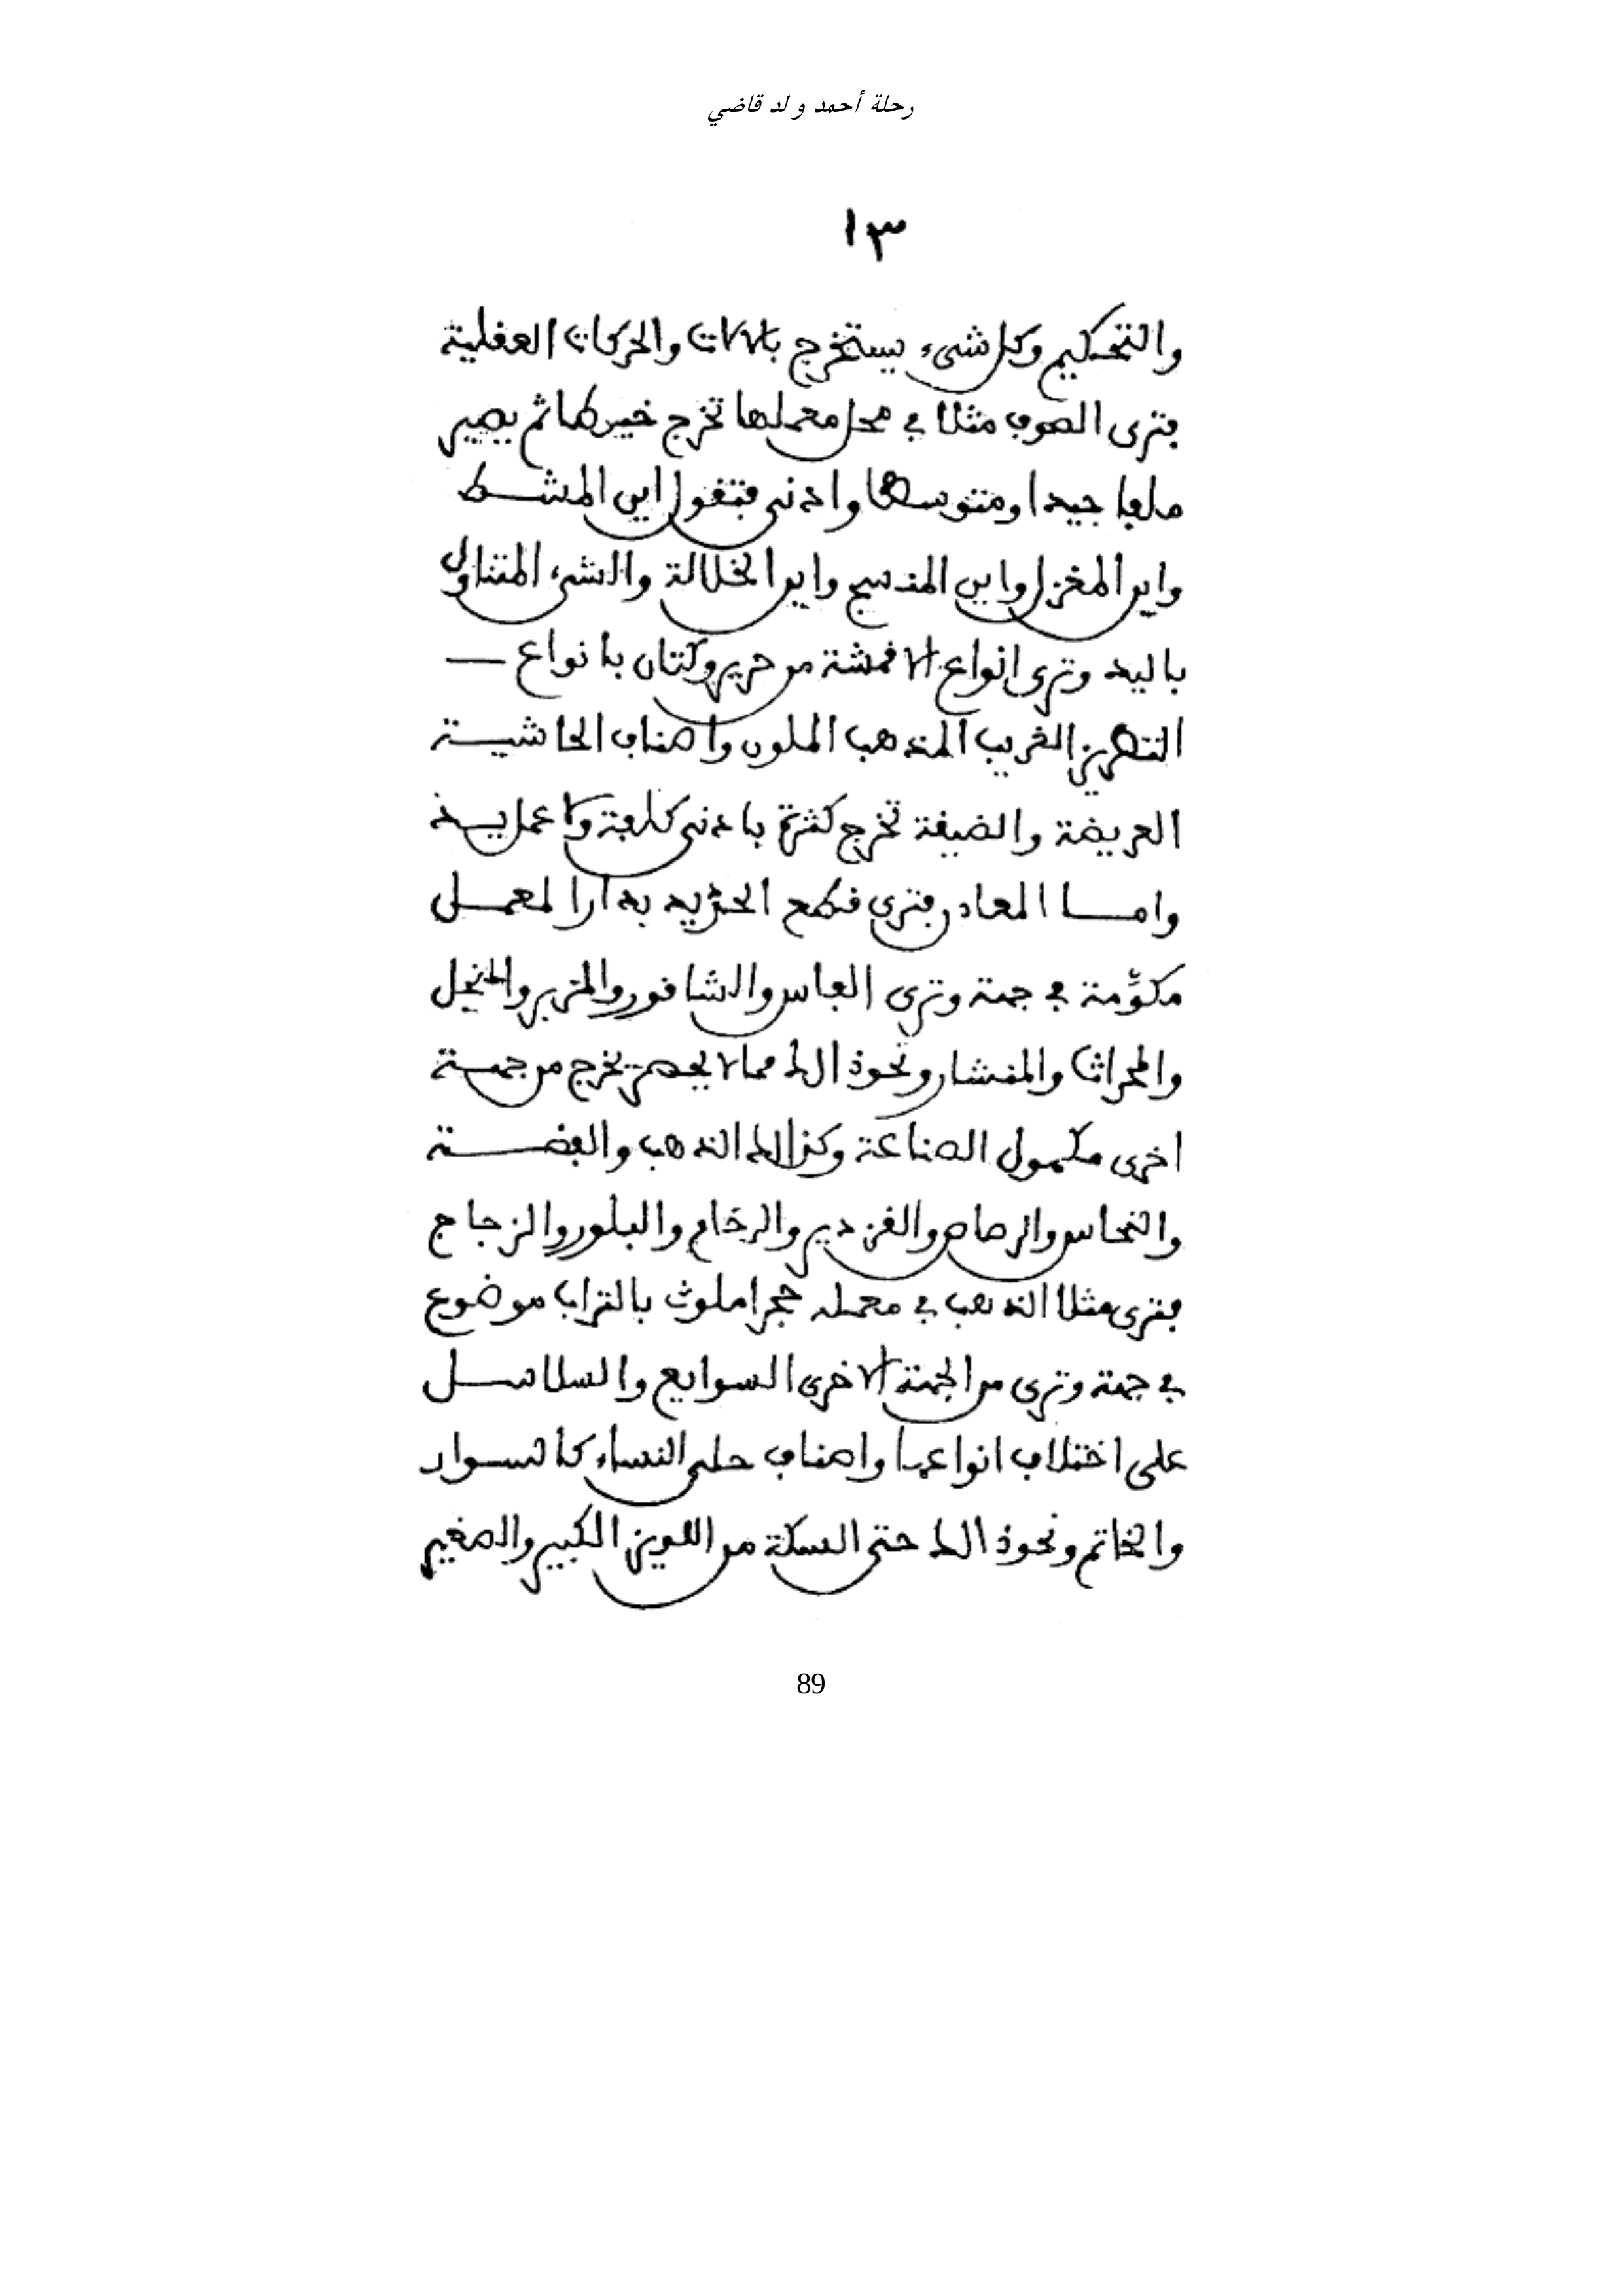 رحلة أحمد ولد قاضي
٣١
والتحكيم وكل شيء يستخرج بالالات والحركات العقلية
فترى الصوف مثلا في محل معملها تخرج خيوطها ثم يصير
ملفا جيدا ومتوسطا وادنى فتقول اين المشط
واين المغزل واين المنسج واين الخلالة والشيء المتناول
باليد وترى انواع الاقمشة من حرير وكتان بانواع
التطريز الغريب المذهب الملون واصناف الحاشية
العريضة والضيقة تخرج كثرة بادنى كلفة ولا عمل يد
واما المعادن فترى قطع الحديد بدار المعمل
مكومة في جهة وترى الفاس والشاقور والمزبر والمنجل
والمحراث والمنشار ونحو ذالك مما لا يحصى يخرج من جهة
اخرى مكمول الصناعة وكذالك الذهب والفضة
والنحاس والرصاص والقزدير والرخام والبلور والزجاج
فترى مثلا الذهب في معمله حجرا ملوث بالتراب موضوع
في جهة وترى من الجهة الاخرى السوايع والسلاسل
على اختلاف انواعها واصناف حلي النساء كالسوار
والخاتم ونحو ذالك حتى السكة من اللويز الكبير والصغير
89